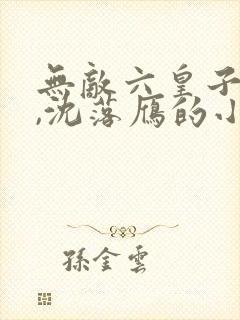 無敵六皇子
,沈落雁的小
孫金雲